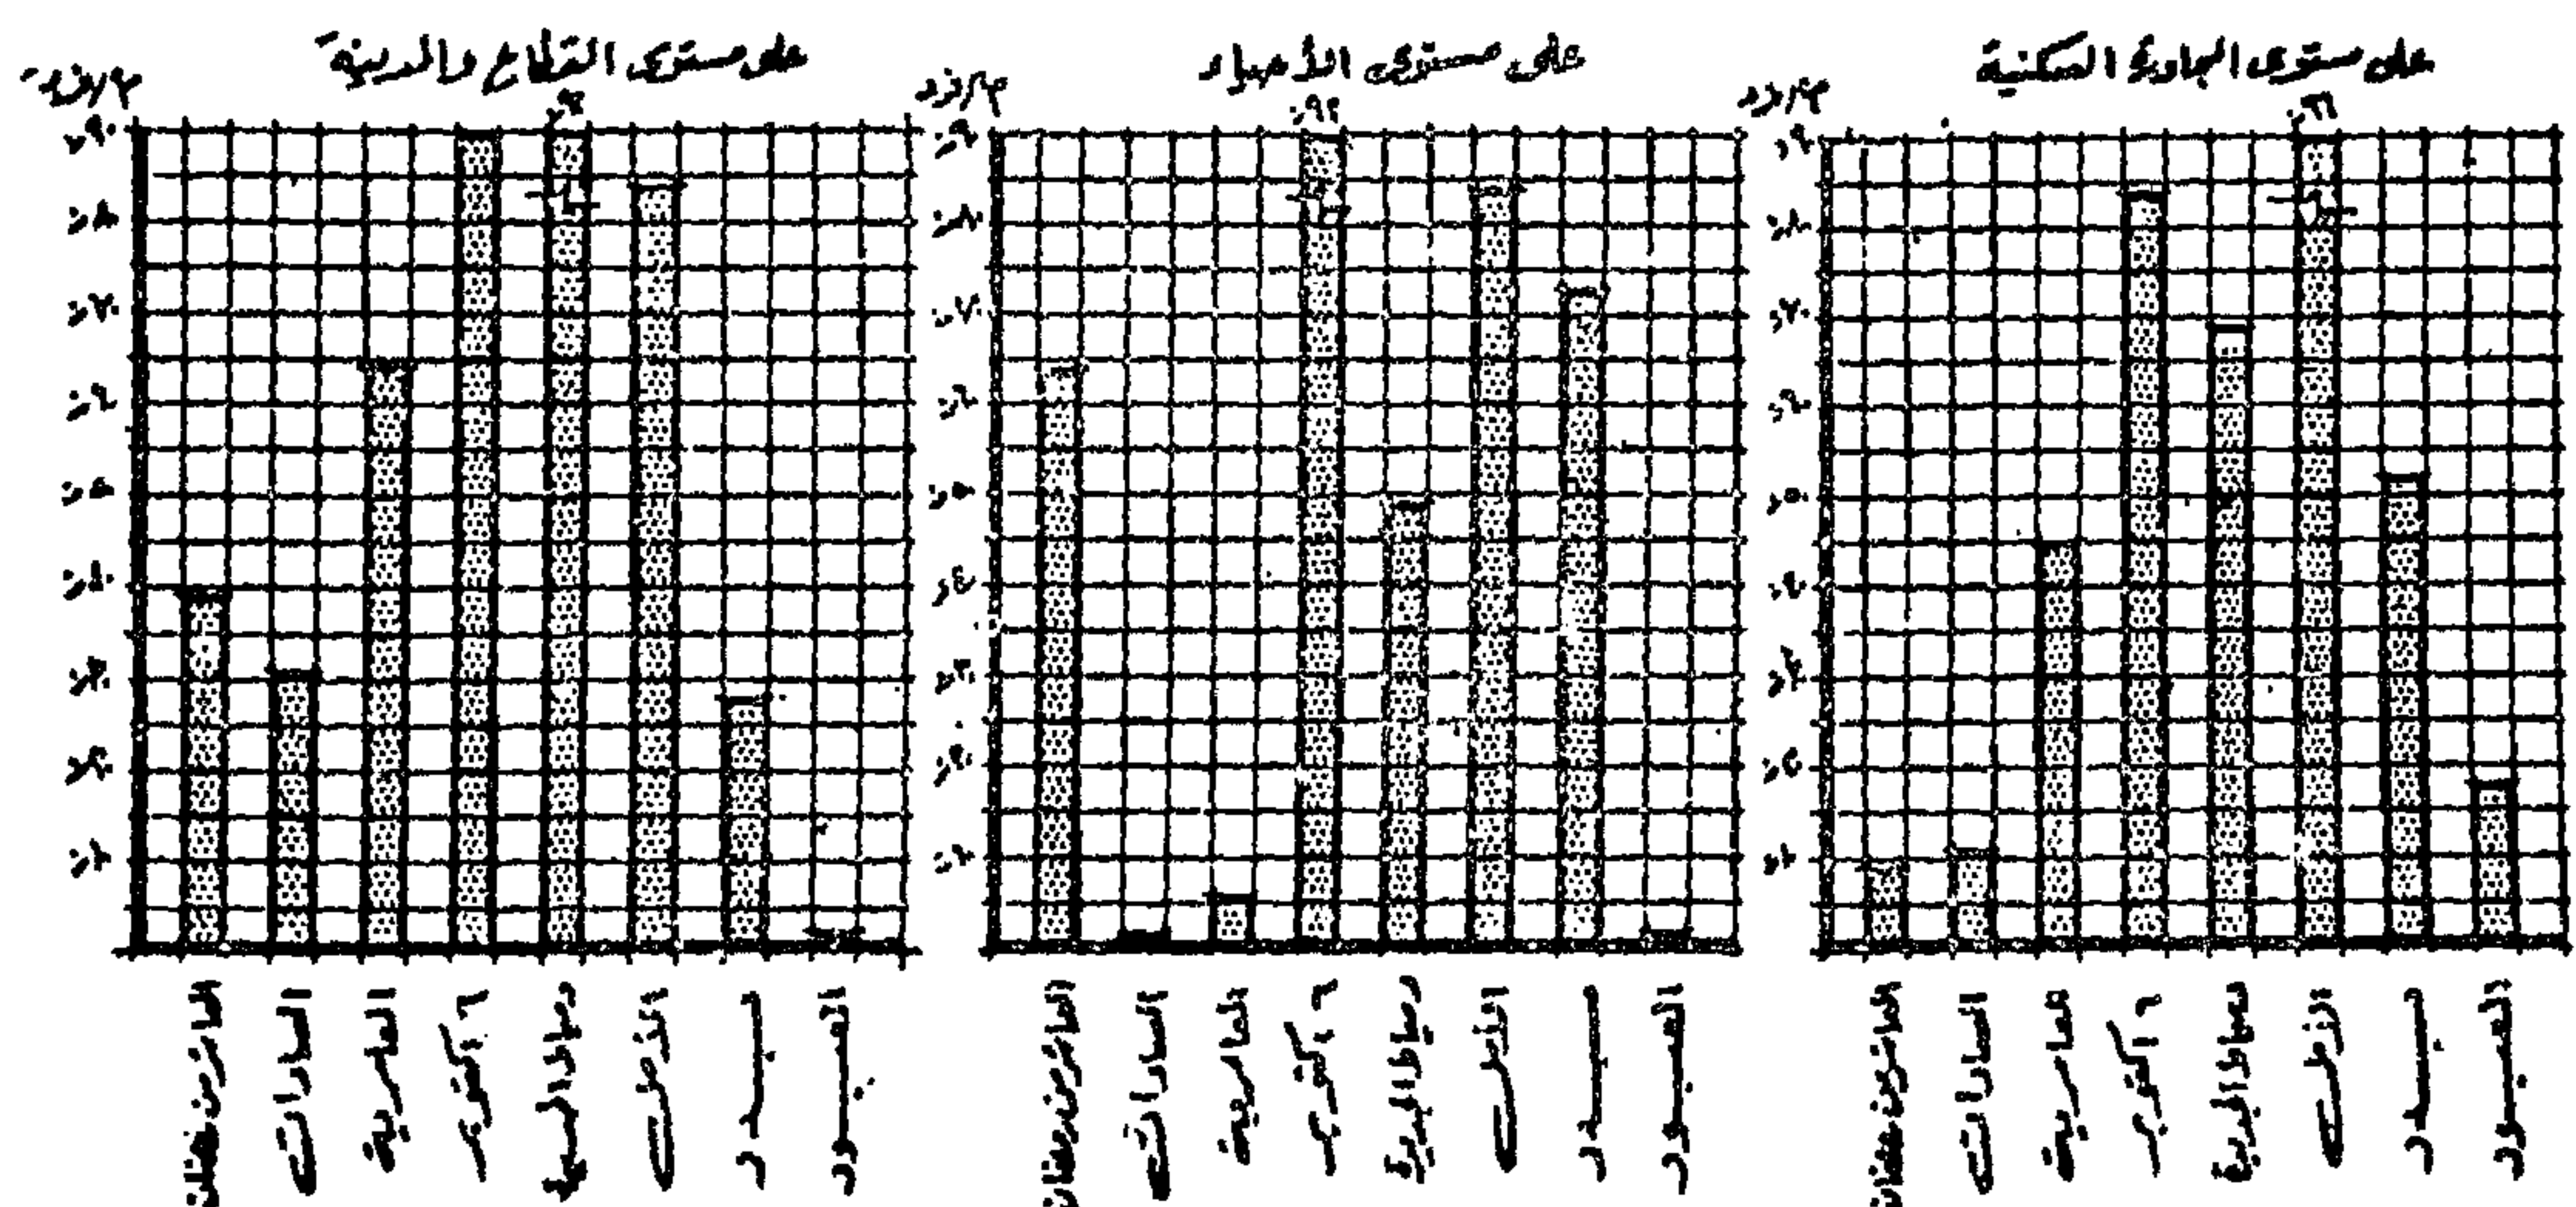 على مستوى المجاورة السكنية
م٢/فرد
٩٠ر
٨٠ر
٧٠ر
٦٠ر
٥٠ر
٤٠ر
٣٠ر
٢٠ر
١٠ر
العاشر من رمضان
السادات
العامرية
٦ أكتوبر
دمياط الجديدة
الأمل
بدر
العبور
على مستوى الأحياء
م٢/فرد
٩٠ر
٨٠ر
٧٠ر
٦٠ر
٥٠ر
٤٠ر
٣٠ر
٢٠ر
١٠ر
العاشر من رمضان
السادات
العامرية
٦ أكتوبر
دمياط الجديدة
الأمل
بدر
العبور
على مستوى القطاع والمدينة
م٢/فرد
٩٠ر
٨٠ر
٧٠ر
٦٠ر
٥٠ر
٤٠ر
٣٠ر
٢٠ر
١٠ر
العاشر من رمضان
السادات
العامرية
٦ أكتوبر
دمياط
الأمل
بدر
العبور